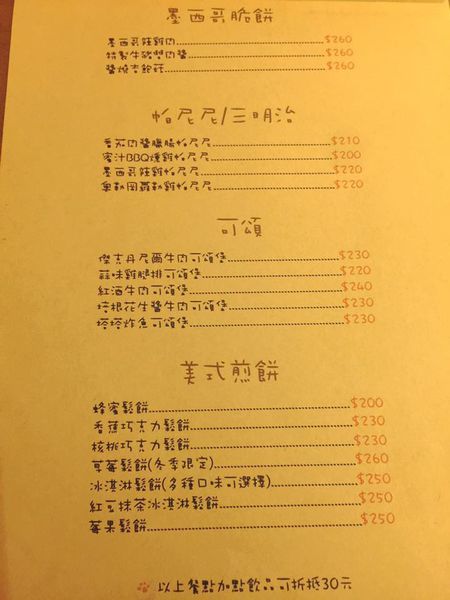 墨西哥脆餅
墨西哥莊雞肉 $260
特製牛豬雙肉醬 $260
醬燒杏鮑菇 $260
帕尼尼/三明治
番茄肉醬臘腸帕尼尼 $210
蜜汁BBQ燻雞帕尼尼 $200
墨西哥莊雞帕尼尼 $220
奧勒岡羅勒雞帕尼尼 $220
可頌
傑克丹尼爾牛肉可頌堡 $230
蒜味雞腿排可頌堡 $220
紅酒牛肉可頌堡 $240
培根花生醬牛肉可頌堡 $230
塔塔炸魚可頌堡 $230
美式煎餅
蜂蜜鬆餅 $200
香蕉巧克力鬆餅 $230
核桃巧克力鬆餅 $230
草莓鬆餅(冬季限定) $260
冰淇淋鬆餅(多種口味可選擇) $250
紅豆抹茶冰淇淋鬆餅 $250
莓果鬆餅 $250
以上餐點加點飲品可折抵30元